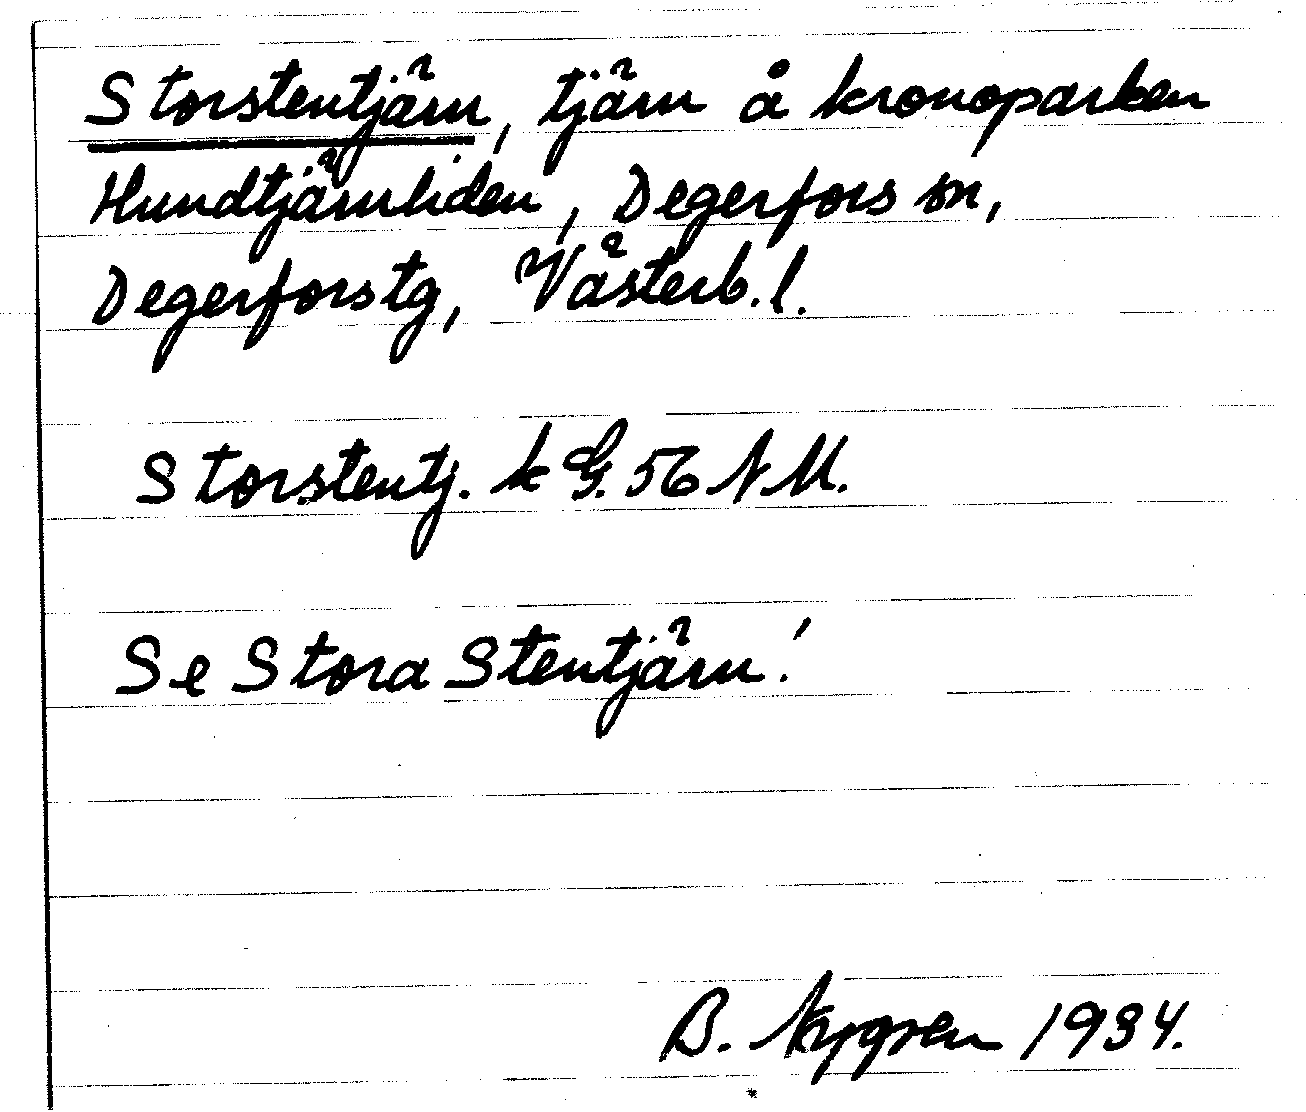 Storstentjärn, tjärn å kronoparken
Hundtjärnliden, Degerfors sn,
Degerfors tg, Västerb. l.
Storstentj. k G. 56 NM.
Se Stora Stentjärn!
B. Nygren 1934.